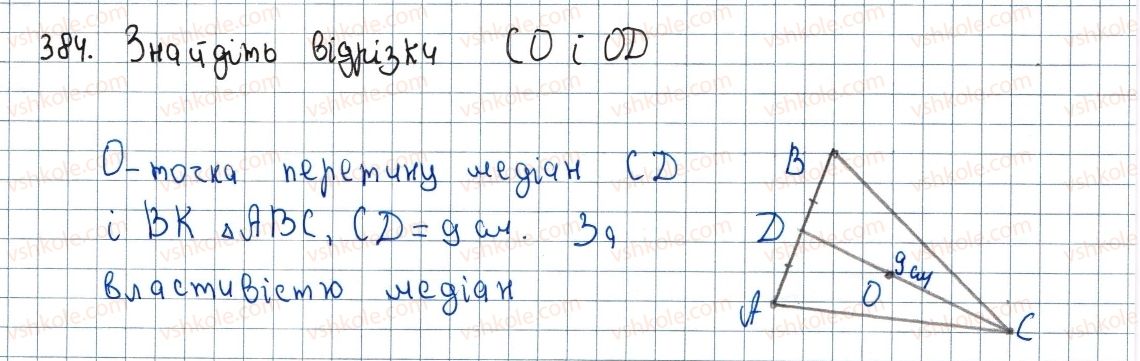 384. Знайдіть відрізки CO і OD
O - точка перетину медіан CD
і BK △ABC, CD = 9 см. За
властивістю медіан
B
D
9 см
O
A
C
vshkole.com